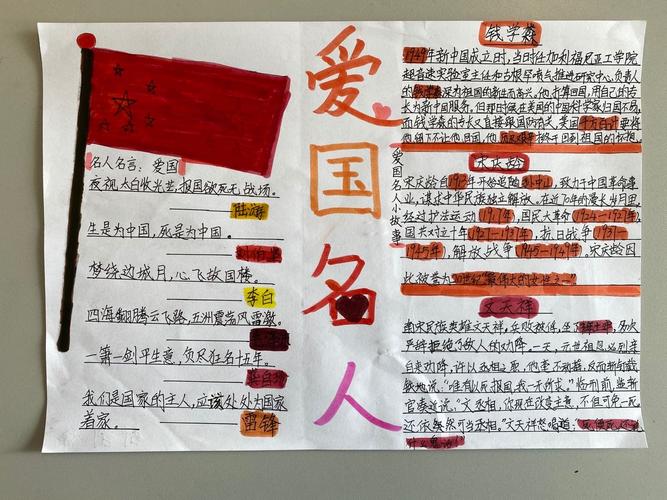 名人名言:爱国
夜视太白收光芒,报国欲死无战场。
陆游
生是为中国,死是为中国。
梦绕边城月,心飞故国楼。
李白
四海翻腾云水怒,五洲震荡风雷激。
一箫一剑平生意,负尽狂名十五年。
龚自珍
我们是国家的主人,应该处处为国家
着家。
雷锋
爱
国
名
人
爱国名人小故事
钱学森
1949年新中国成立时,当时任加利福尼亚工学院
超音速实验室主任和古根罕喷气推进研究中心负责人
的钱学森深为祖国的新生而高兴。他打算回国,用自己的专
长为新中国服务,但那时候在美国的中国科学家归国不易,
而钱学森的专长又直接跟国防有关,美国千方百计要将
他留下不让他回国,他
终于回到祖国的怀抱。
宋庆龄
宋庆龄自1913年开始追随孙中山,致力于中国革命事
业,谋求中华民族独立解放,在近70年的漫长岁月里,
经过护法运动(1917年),国民大革命(1924-1927年),
国共对立十年(1927-1937年),抗日战争(1931-
1945年),解放战争(1945-1949年)。宋庆龄因
此被誉为20世纪"最伟大的女性之一"
文天祥
南宋民族英雄文天祥,兵败被俘,坐
多次
严辞拒绝了敌人的劝降。一天,元世祖忽必烈亲
自来劝降,许以丞相之职,他毫不动摇,反而斩钉截
铁地说:"唯有以死报国,我一无所求。"临刑前,监斩
官凑近说:"文丞相,你现在改变主意,不但可免一死,
还依然可当丞相。"文天祥怒喝道: